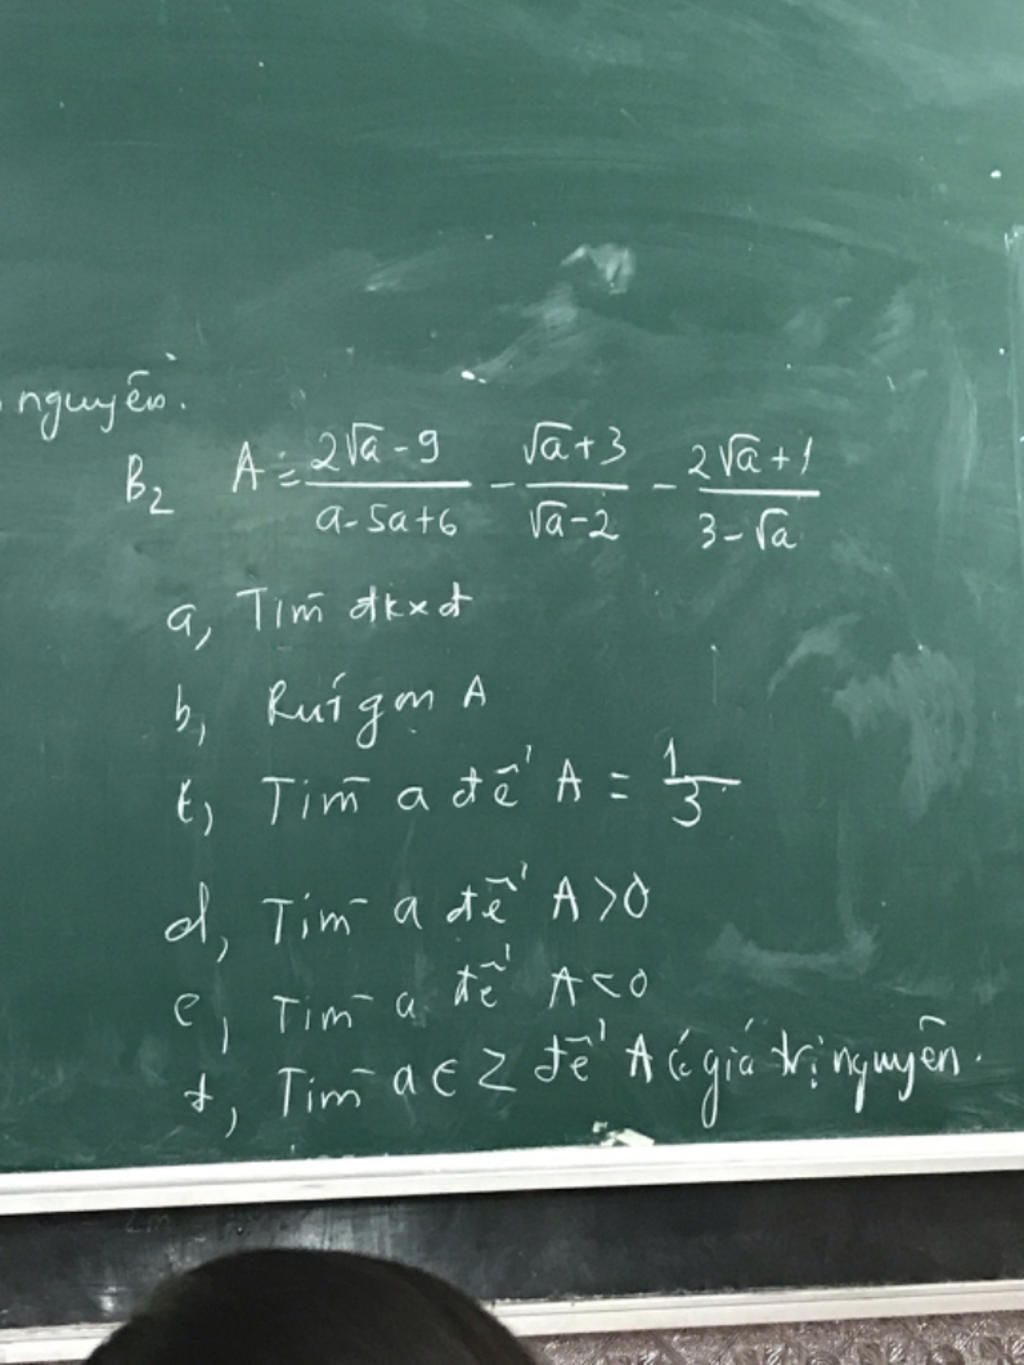 nguyên.
B2 A = \frac{2\sqrt{a}-9}{a-5a+6} - \frac{\sqrt{a}+3}{\sqrt{a}-2} - \frac{2\sqrt{a}+1}{3-\sqrt{a}}
a, Tìm đkxđ
b, Rút gọn A
c, Tìm a để A = \frac{1}{3}
d, Tìm a để A>0
e, Tìm a để A<0
f, Tìm a ∈ Z để A có giá trị nguyên.